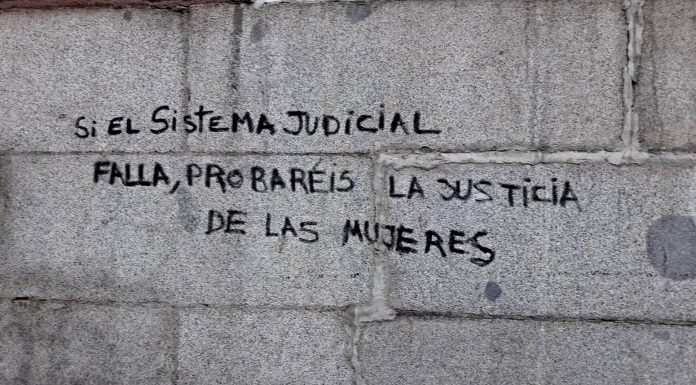 Si EL SiStEMA JUDICIAL
FALLA, PROBARÉIS LA JUSTICIA
DE LAS MUJERES